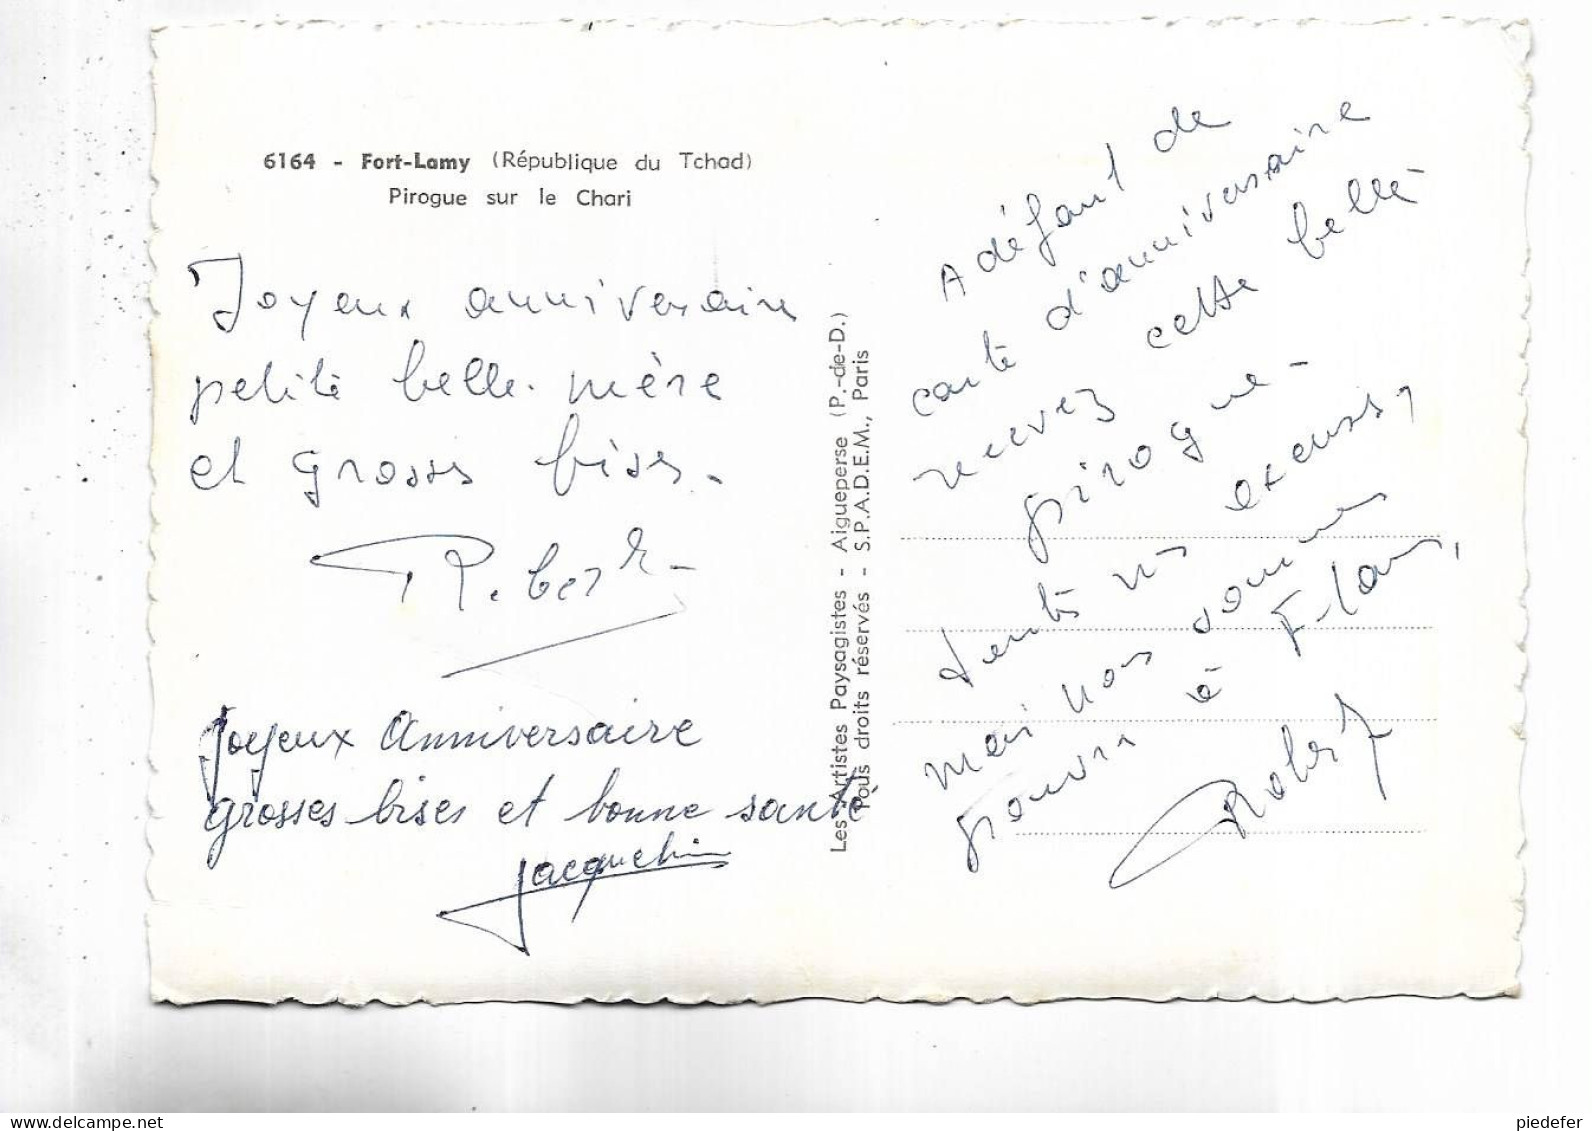 6164 - Fort-Lamy (République du Tchad)
Pirogue sur le Chari
Joyeux anniversaire
petite belle-mère
et grosses bises.
Robert
Joyeux Anniversaire
grosses bises et bonne santé
Jacqueline
Les Artistes Paysagistes - Aigueperse (P.-de-D.)
Tous droits réservés - S.P.A.D.E.M., Paris
A défaut de
carte d'anniversaire
recevez cette belle
pirogue -
toutes nos excuses,
mais nous sommes
à F-Lamy,
Robert
www.delcampe.net
piedefer